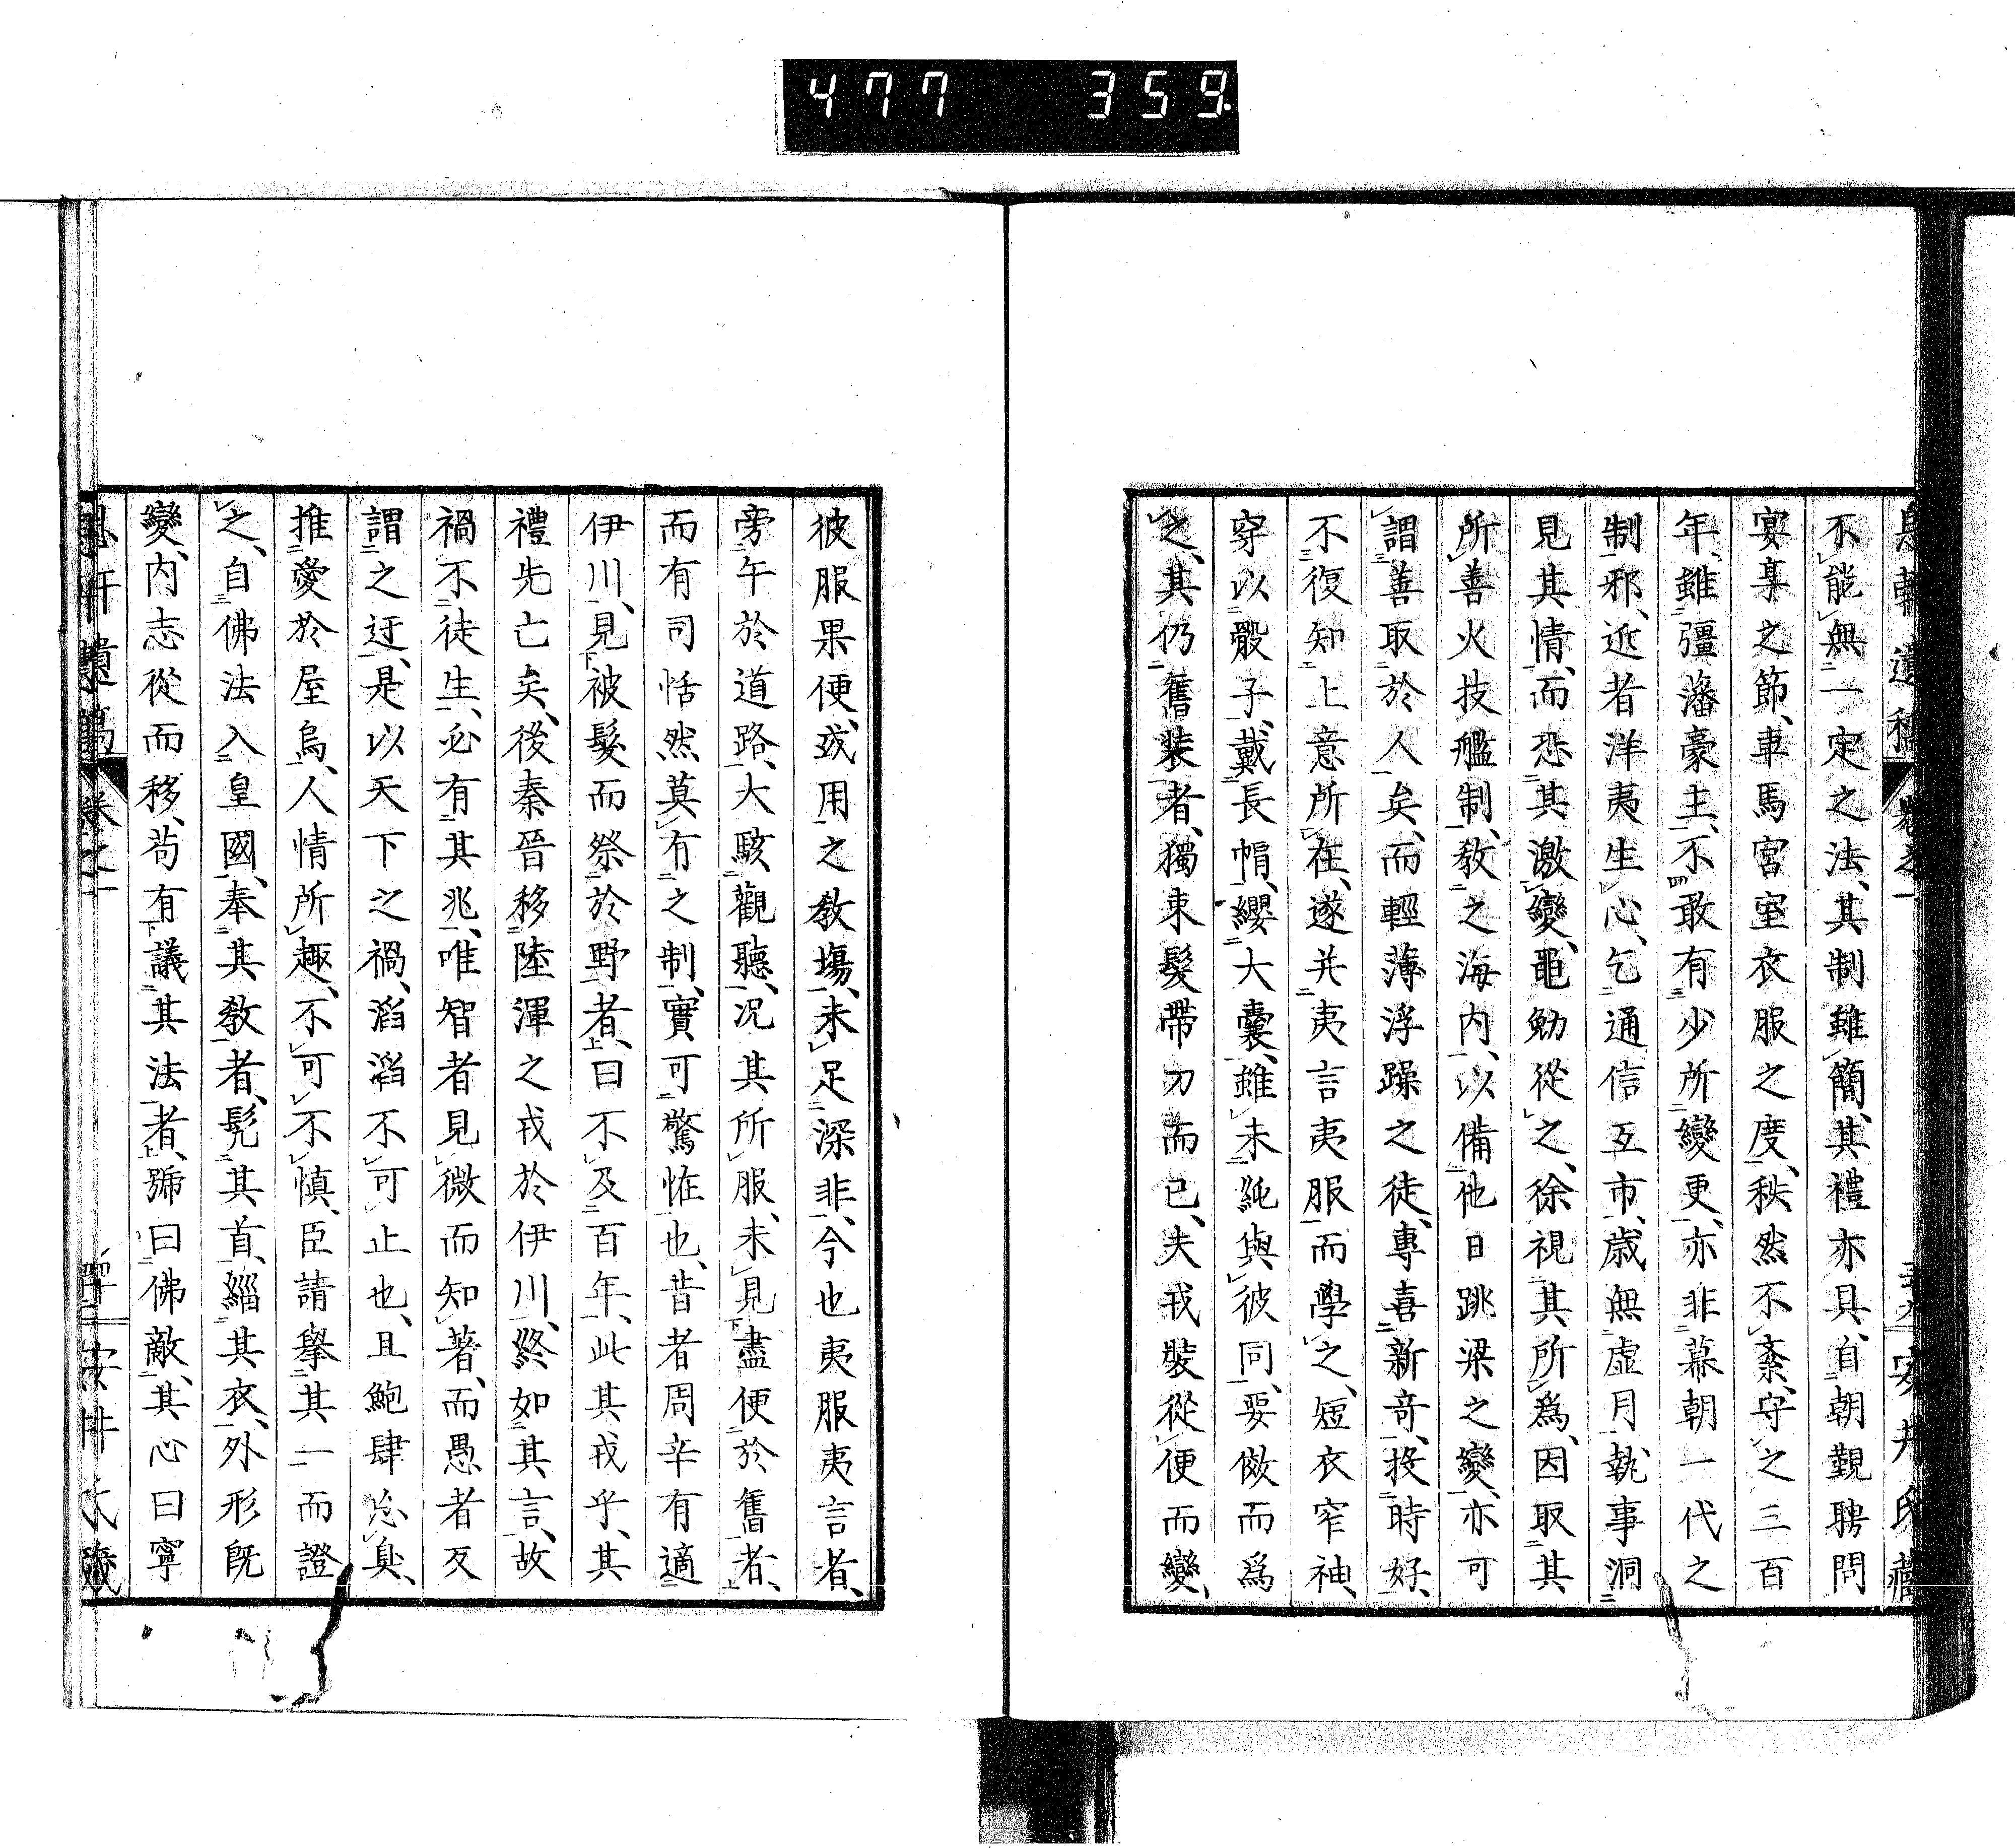 477 359
不能無一定之法、其制雖簡、其禮亦具、自朝覲聘問
宴享之節、車馬宮室衣服之度、秩然不紊、守之三百
年、雖彊藩豪主、不敢有少所變更、亦非幕朝一代之
制邪、近者洋夷生心、乞通信互市、歲無虛月、執事洞
見其情、而恐其激變、黽勉從之、徐視其所爲、因取其
所善火技艦制、敎之海內、以備他日跳梁之變、亦可
謂善取於人矣、而輕薄浮躁之徒、專喜新奇、投時好、
不復知上意所在、遂并夷言夷服而學之、短衣窄袖、
穿以骰子、戴長帽、纓大囊、雖未純與彼同、要傚而爲
之、其仍舊裝者、獨束髮帶刀而已、夫戎裝從便而變、
彼服果便、或用之敎場、未足深非、今也夷服夷言者、
旁午於道路、大駭觀聽、況其所服、未見盡便於舊者、
而有司恬然莫有之制、實可驚怪也、昔者周辛有適
伊川、見被髮而祭於野者、曰不及百年、此其戎乎、其
禮先亡矣、後秦晉移陸渾之戎於伊川、終如其言、故
禍不徒生、必有其兆、唯智者見微而知著、而愚者反
謂之迂、是以天下之禍、滔滔不可止也、且鮑肆忘臭、
推愛於屋烏、人情所趣、不可不愼、臣請擧其一而證
之、自佛法入皇國、奉其敎者、髡其首、緇其衣、外形旣
變、內志從而移、苟有議其法者、號曰佛敵、其心曰寧
息軒遺稿 卷之一 安井氏藏